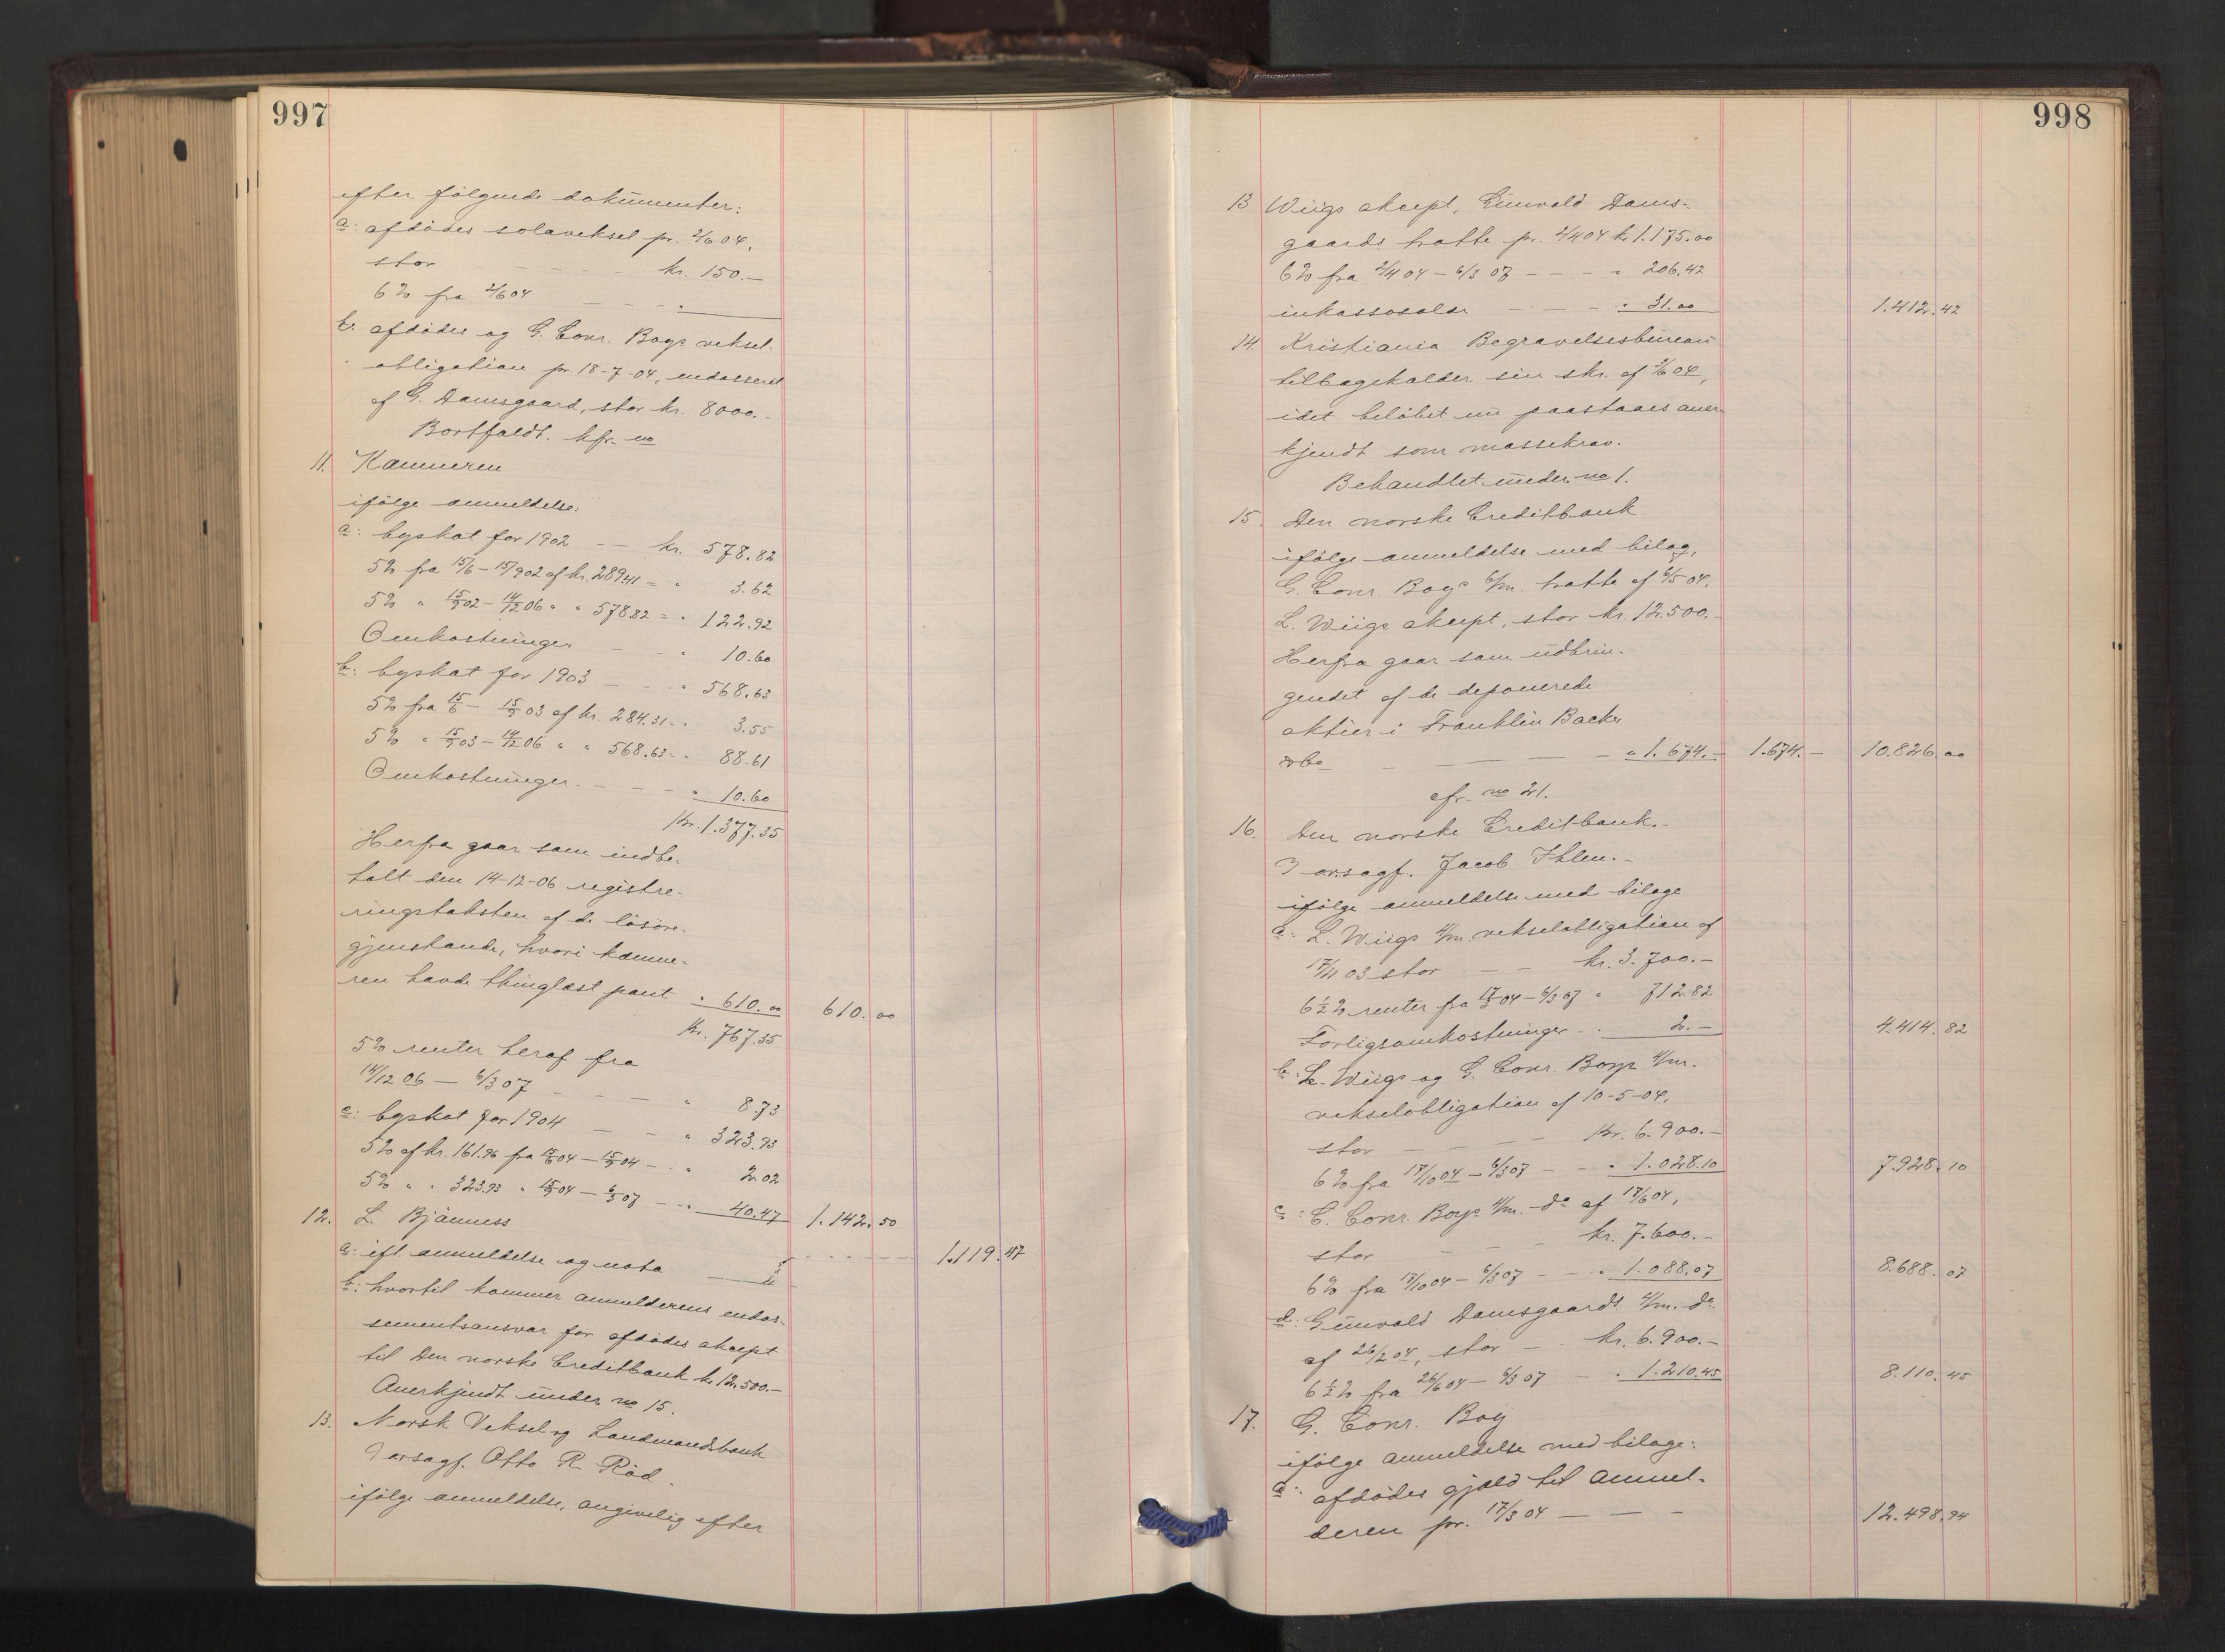 997
efter følgende dokumenter:
a: afdødes solaveksel pr. 2/6 04,
stor — — — kr. 150.—
6 % fra 2/6 04 — — — "
b. afdødes og G. Conr. Boys veksel-
obligation pr 18-7-04, endosseret
af G. Damsgaard, stor kr. 8000.-
Bortfaldt. kfr. no
11. Kæmneren
ifølge anmeldelse.
a: byskat for 1902 — — kr. 578.82
5% fra 15/6 - 15/9 02 af kr. 289.41 = " 3.62
5% " 15/9 02 - 14/12 06 " " 578.82 = " 122.92
Omkostninger — — " 10.60
b: byskat for 1903 — — " 568.63
5% fra 15/6 - 15/9 03 af kr. 284.31 = " 3.55
5% " 15/9 03 - 14/12 06 " " 568.63 = " 88.61
Omkostninger. — — — " 10.60
Kr. 1.377.35
Herfra gaar som indbe-
talt den 14-12-06 registre-
ringstaksten af de løsøre-
gjenstande, hvori kæmne-
ren havde thinglæst pant " 610.00 610.00
Kr. 767.35
5% renter heraf fra
14/12 06 — 6/3 07 — — — " 8.73
c: byskat for 1904 — — " 323.93
5% af kr. 161.96 fra 15/6 04 — 15/9 04 — " 2.02
5% " " 323.93 " 15/9 04 — 6/3 07 — " 40.47 1.142.50
12. L. Bjånness
a: ifl. anmeldelse og nota — — 1.119.47
b: hvortil kommer anmelderens endos-
sementsansvar for afdødes aksept
til Den norske Creditbank kr 12.500.—
Anerkjendt under no 15.
13. Norsk Veksel og Landmandsbank
v/ orsagf. Otto R. Röd.
ifølge anmeldelse, angivelig efter
998
13 Wiigs aksept, Gunvald Dams-
gaards tratte pr. 2/4 04 kr. 1.175.00
6% fra 2/4 04 — 6/3 07 — — — " 206.42
inkassosalær — — — " 31.00 1.412.42
14. Kristiania Begravelsesbureau
tilbagekalder sin skr. af 2/6 04,
idet beløbet nu paastaaes aner-
kjendt som massekrav.
Behandlet under no 1.
15. Den norske Creditbank
ifølge anmeldelse med bilag,
G. Conr. Boys 6/m. tratte af 6/5 04.
L. Wiigs aksept, stor kr. 12.500.-
Herfra gaar som udbrin-
gendet af de deponerede
aktier i Franklin Backe
&Co — — — — " 1.674.— 1.674.— 10.826.00
cfr. no 21.
16. Den norske Creditbank.-
v/ orsagf. Jacob Ihlen.-
ifølge anmeldelse med bilage
a: L. Wiigs 4/m. vekselobligation af
17/11 03 stor — — kr. 3.700.—
6 1/2 % renter fra 17/3 04 - 6/3 07 " 712.82
Forligsomkostninger — " 2.— 4.414.82
b: L. Wiigs og G. Conr. Boys 4/m.
vekselobligation af 10-5-04,
stor — — — — Kr. 6.900.—
6 % fra 17/10 04 - 6/3 07 — — " 1.028.10 7.928.10
c: G. Conr. Boys 4/m. do af 17/6 04,
stor — — — kr. 7.600.—
6% fra 17/10 04 - 6/3 07 — — " 1.088.07 8.688.07
d: Gunvald Damsgaards 4/m. do.
af 26/2 04, stor — . kr. 6.900.—
6 1/2 % fra 26/6 04 - 6/3 07 — " 1.210.45 8.110.45
17. G. Conr. Boy
ifølge anmeldelse med bilage:
a: afdødes gjæld til anmel-
deren pr. 17/3 04 — — — 12.498.94